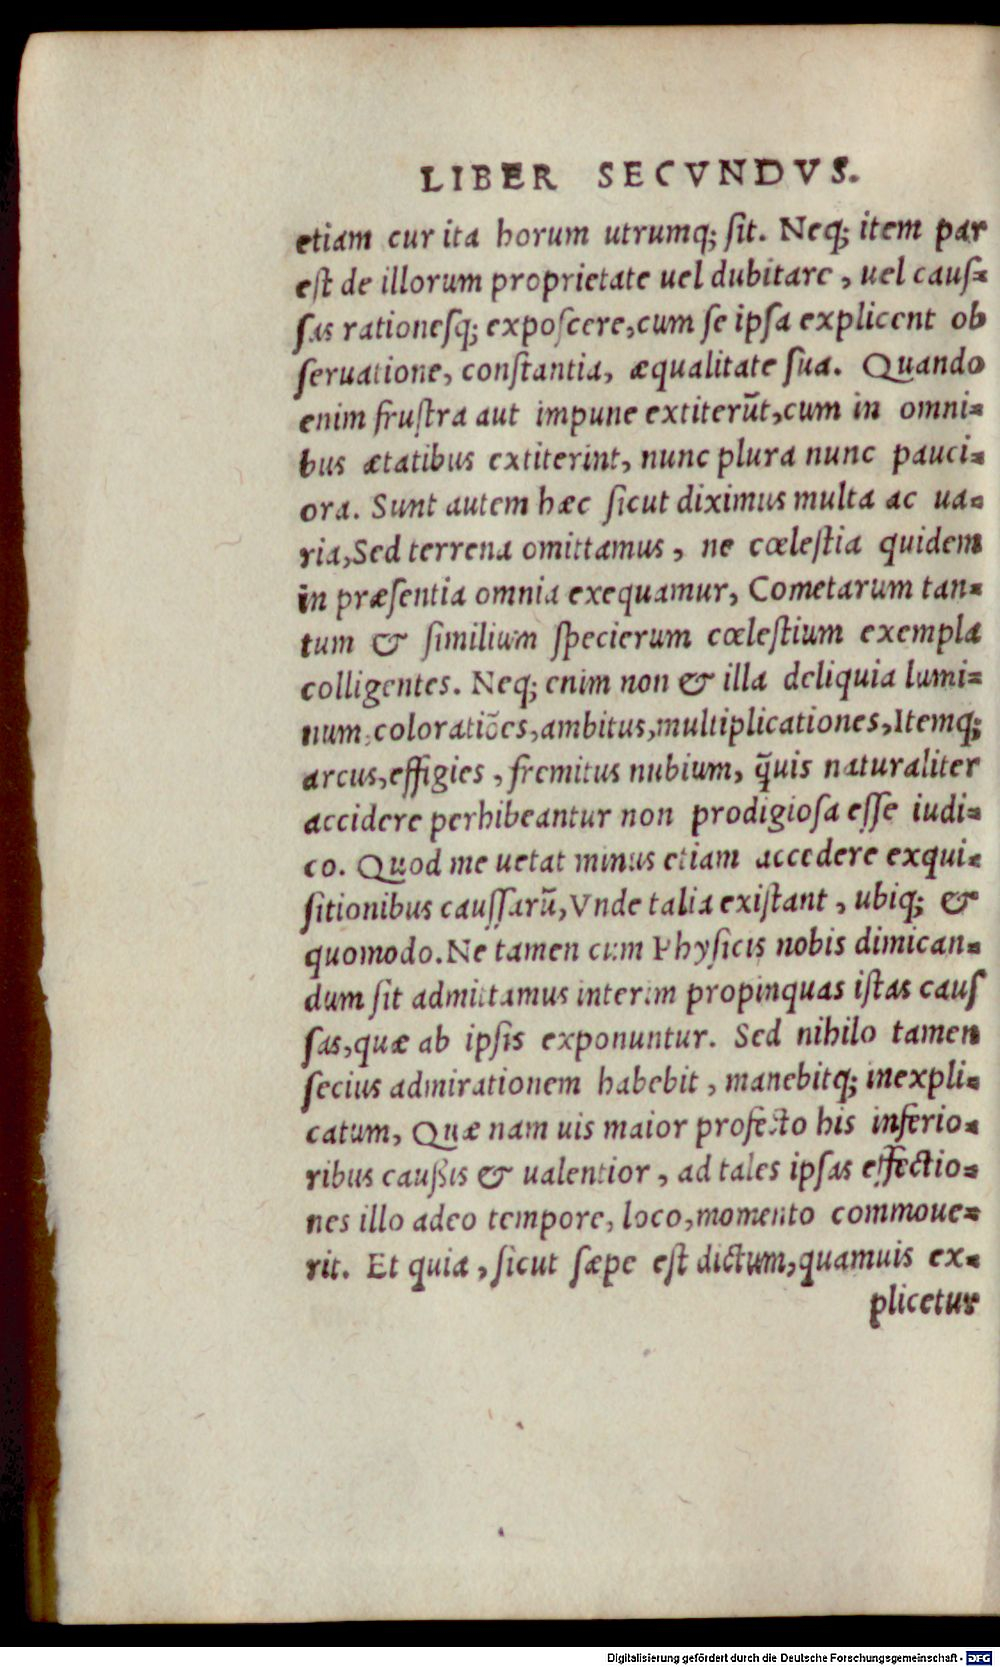 LIBER SECVNDVS.
etiam cur ita horum utrumq; ſit. Neq; item par
eſt de illorum proprietate uel dubitare, uel cauſ-
ſas rationeſq; expoſcere, cum ſe ipſa explicent ob
ſeruatione, conſtantia, æqualitate ſua. Quando
enim fruſtra aut impune extiterũt, cum in omni-
bus ætatibus extiterint, nunc plura nunc pauci-
ora. Sunt autem hæc ſicut diximus multa ac ua-
ria, Sed terrena omittamus, ne cœleſtia quidem
in præſentia omnia exequamur, Cometarum tan-
tum & ſimilium ſpecierum cœleſtium exempla
colligentes. Neq; enim non & illa deliquia lumi-
num, coloratiões, ambitus, multiplicationes, Itemq;
arcus, effigies, fremitus nubium, q̃uis naturaliter
accidere perhibeantur non prodigioſa eſſe iudi-
co. Quod me uetat minus etiam accedere exqui-
ſitionibus cauſſarũ, Vnde talia exiſtant, ubiq; &
quomodo. Ne tamen cum Phyſicis nobis dimican-
dum ſit admittamus interim propinquas iſtas cauſ
ſas, quæ ab ipſis exponuntur. Sed nihilo tamen
ſecius admirationem habebit, manebitq; inexpli-
catum, Quæ nam uis maior profecto his inferio-
ribus caußis & ualentior, ad tales ipſas effectio-
nes illo adeo tempore, loco, momento commoue-
rit. Et quia, ſicut ſæpe eſt dictum, quamuis ex-
plicetur
Digitalisierung gefördert durch die Deutsche Forschungsgemeinschaft - DFG